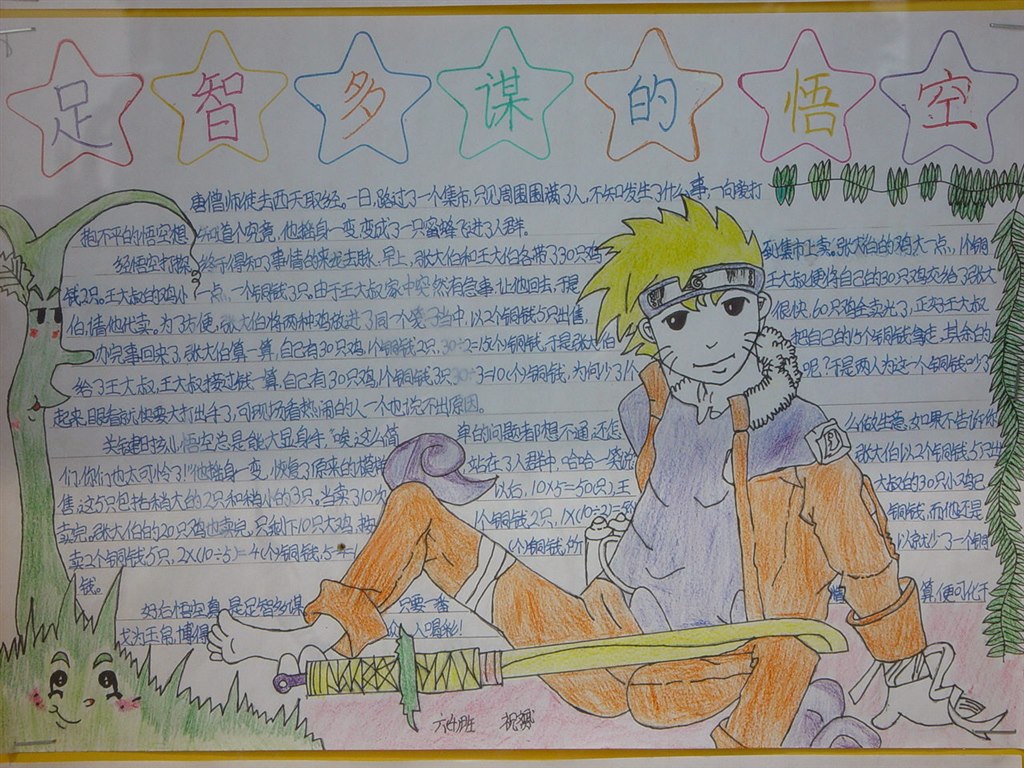 足智多谋的悟空
唐僧师徒去西天取经。一日,路过了一个集市,只见周围围满了人,不知发生了什么事,一向爱打
抱不平的悟空想知道个究竟,他摇身一变,变成了一只蜜蜂飞进了人群。
经悟空打探,终于得知了事情的来龙去脉。早上,张大伯和王大伯各带了30只鸡到集市上卖。张大伯的鸡大一点,1个铜
钱2只。王大叔的鸡小一点,一个铜钱3只。由于王大叔家中突然有急事让他回去,于是王大叔便将自己的30只鸡交给了张大
伯,请他代卖。为了方便,张大伯将两种鸡放进了同一个笼子当中,以2个铜钱5只出售,很快,60只鸡全卖光了,正好王大叔
办完事回来了,张大伯算一算,自己有30只鸡,1个铜钱2只,30÷2=15个铜钱,于是张大伯把自己的15个铜钱拿走,其余的
给了王大叔,王大叔接过钱一算,自己有30只鸡,1个铜钱3只30÷3=10(个)铜钱,为何少了1个呢?于是两人为这一个铜钱吵了
起来,眼看就快要大打出手了,可现场看热闹的人一个也说不出原因。
关键时候儿悟空总是能大显身手,“唉,这么简单的问题都想不通还怎么做生意,如果不告诉你
们,你们也太可怜了!”他摇身一变,恢复了原来的模样站在了人群中,哈哈一笑说 张大伯以2个铜钱5只出
售,这5只包括稍大的2只和稍小的3只。当卖了10次以后,10×5=50只,王大叔的30只小鸡已
卖完。张大伯的20只鸡也卖完,只剩下10只大鸡,按1个铜钱2只,1×(10÷2)=5 铜钱,而他还是
卖2个铜钱5只,2×(10÷5)=4(个)铜钱,5-4=1(个)铜钱,所以就少了一个铜
钱。
好台悟空真是足智多谋 只要一 算,便可化干
戈为玉帛,博得众人喝彩!